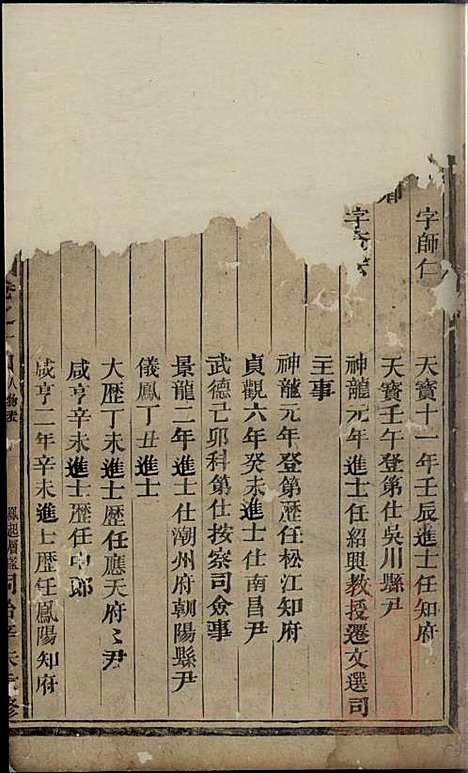 字師仁 天寶十一年壬辰進士任知府
天寶壬午登第仕吳川縣尹
字 神龍元年進士任紹興教授遷文選司
主事
神龍元年登第歷任松江知府
貞觀六年癸未進士仕南昌尹
武德己卯科第仕按察司僉事
景龍二年進士仕潮州府朝陽縣尹
儀鳳丁丑進士
大歷丁未進士歷任應天府之尹
咸亨辛未進士歷任中郎
咸亨二年辛未進士歷任鳳陽知府
卷之一 人物 同治辛 修